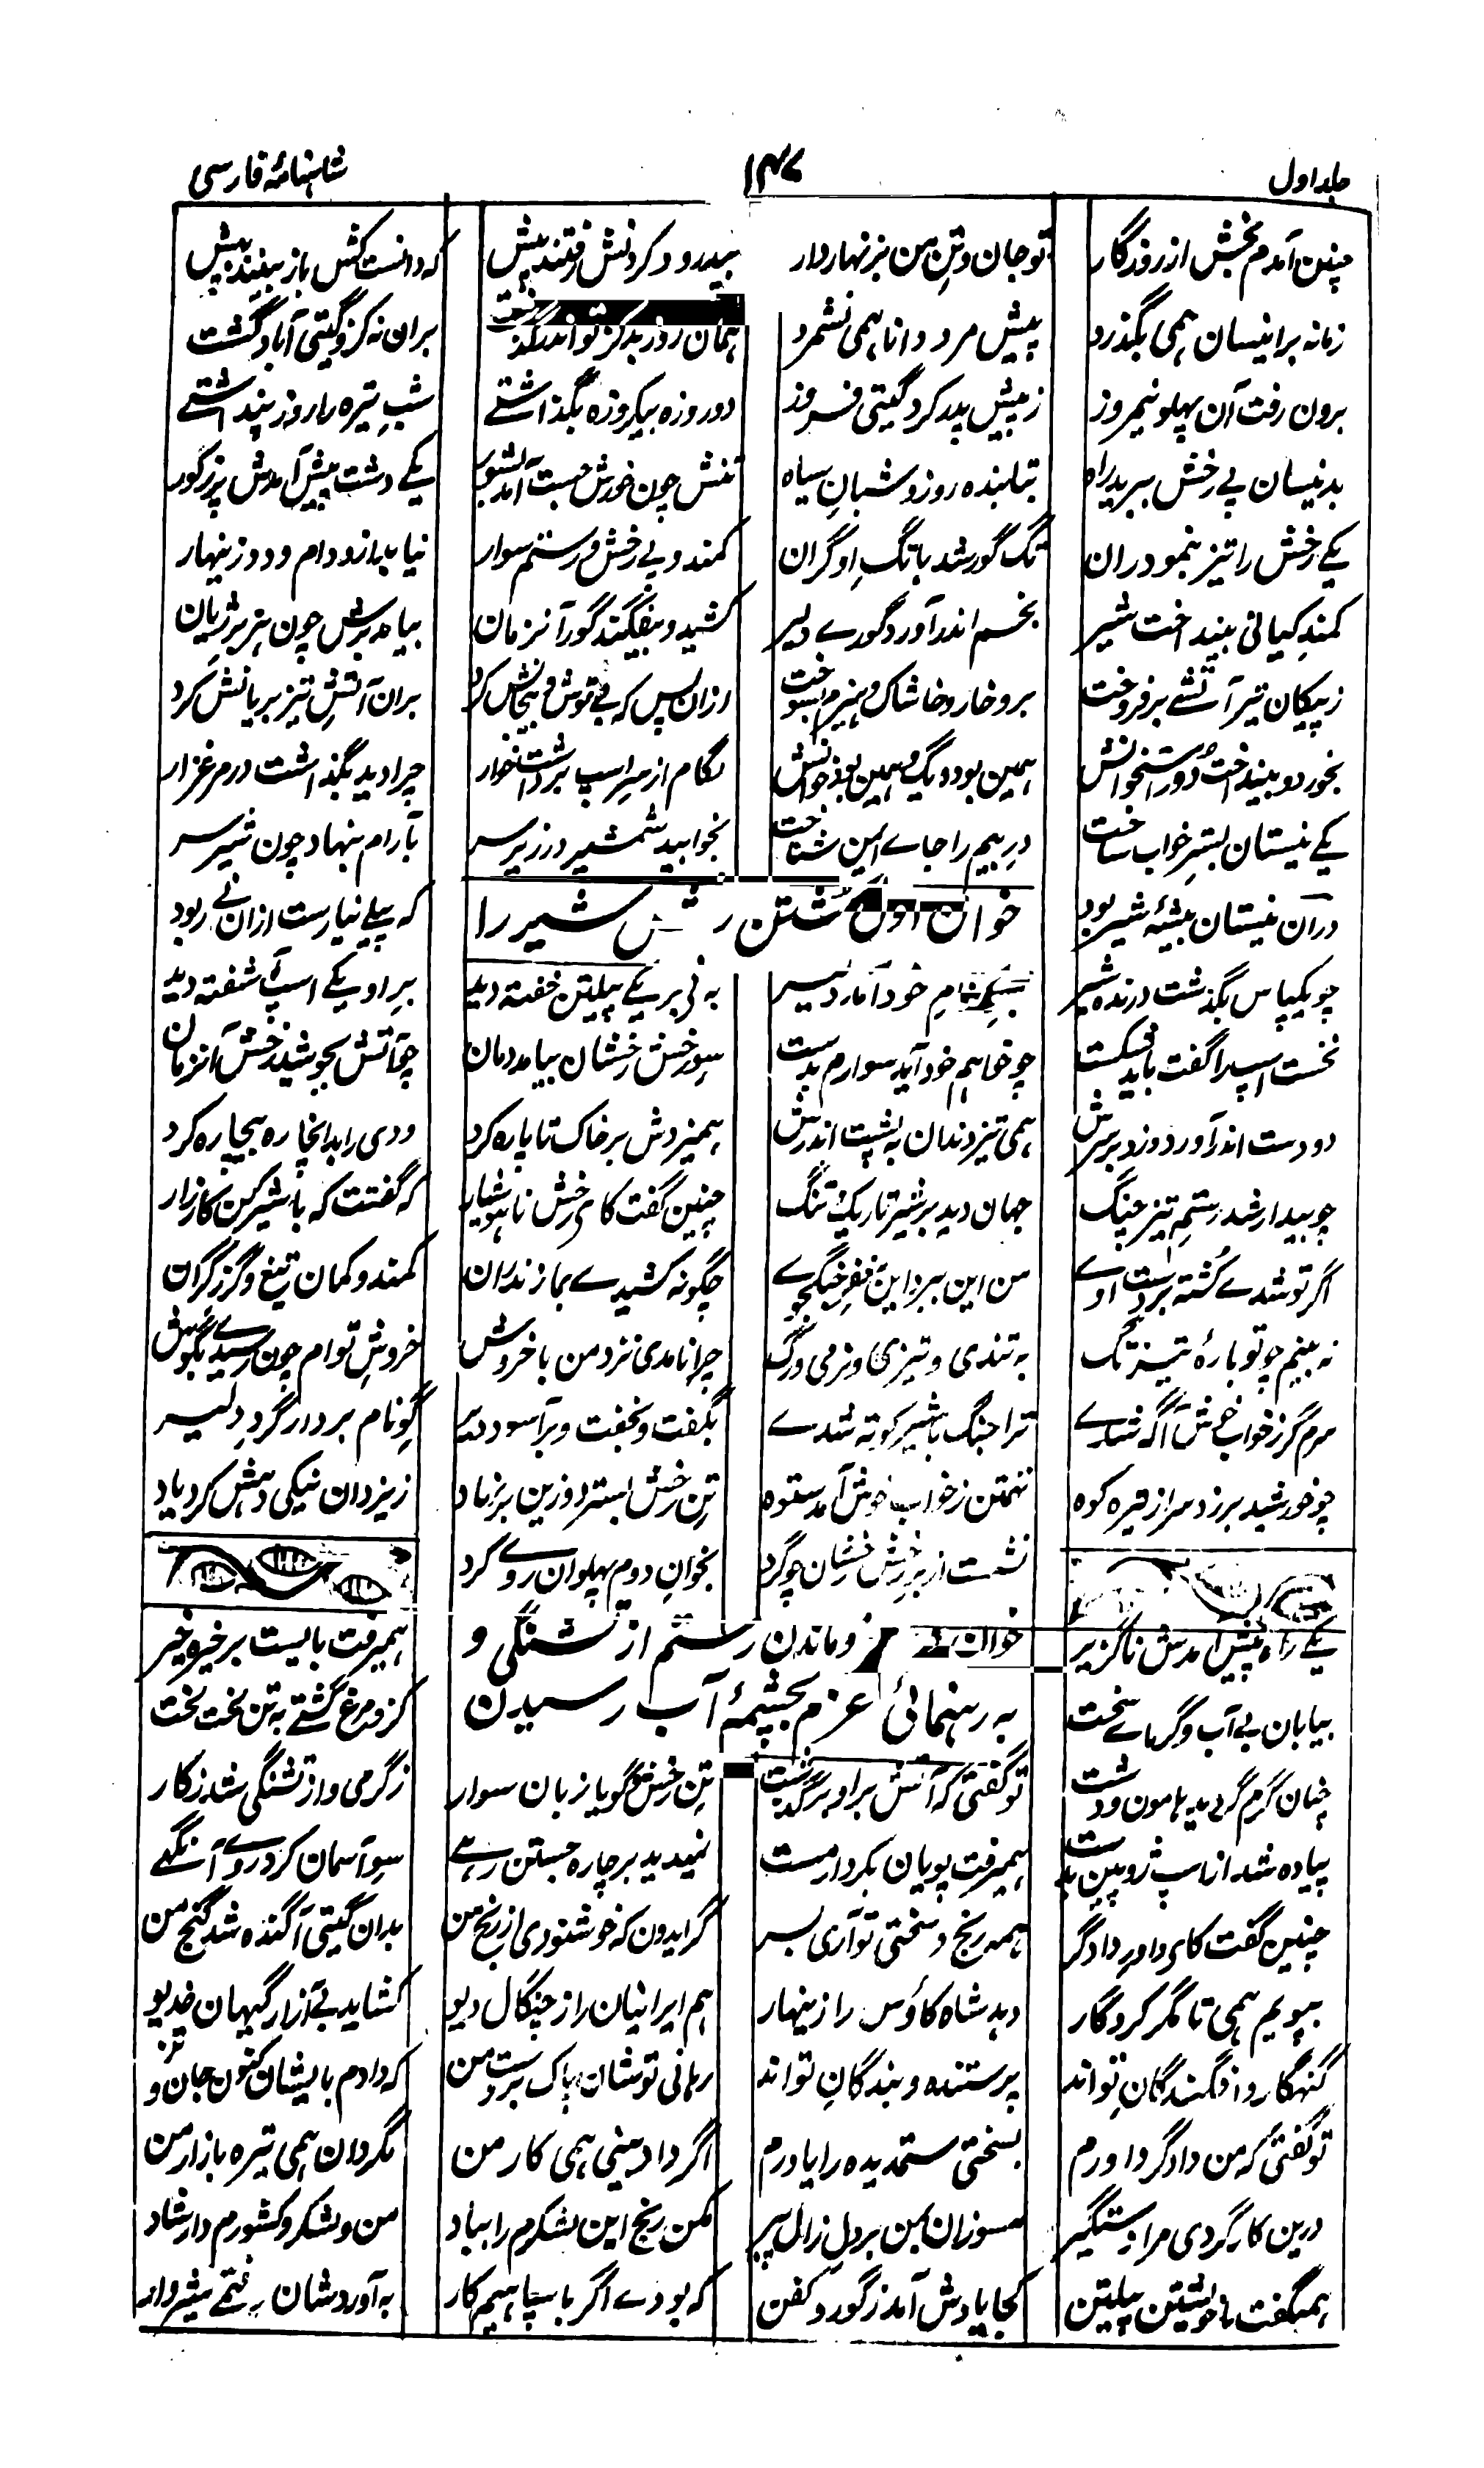 جلد اول ۱۴۷ شاهنامهٔ فارسی
چنین آمدم بخش از روزگار تو جان و تن من بزنهار دار بپدرود کردنش رفتند پیش که دانست کش باز بینند بیش
زمانه برانیسان همی بگذرد پیش مرد دانا همی نشمرد همان روز بد کز تو اندر گذشت بران نه کزو گیتی آباد گشت
برون رفت آن پهلو نیمروز ز پیش پدر کرد گیتی فروز دو روزه بیکروزه بگذاشتے شب تیره را روز پنداشتے
بدنیسان پے رخش ببرید راه بتابنده روز و شبان سیاه تنش چون خورش جست آمد بشور یکے دشت پیش آمدش پر ز گور
یکے رخش را تیز بنمود ران تگ گور شد با تگ او گران کمند و پے رخش و رستم سوار نیابد ازو دام و دد زینهار
کمند کیانی بینداخت شیر بخم اندر آورد گورے دلیر کشید و بیفگند گور آنزمان بیامد برش چون هژبر ژیان
ز پیکان تیر آتشے برفروخت برو خار و خاشاک و هیزم بسوخت ازان پس که بے توش و بیجانش کرد بران آتش تیز بریانش کرد
بخورد و بینداخت دور استخوانش همین بود دیگ و همین بود خوانش لگام از سر اسپ برداشت خوار چرا دید بگذاشت در مرغزار
یکے نیستان بستر خواب ساخت در بیم را جاے ایمن شناخت بخوابید شمشیر در زیر سر بآرام بنهاد چون شیر سر
خوان اول کشتن رخش شیر را
دران نیستان بیشهٔ شیر بود که پیلے نیارست ازان نے ربود
چو یکپاس بگذشت درنده شیر بسوے کنام خود آمد دلیر به نی بر یکے پیلتن خفته دید بر او یکے اسپ آشفته دید
نخست اسپ را گفت باید شکست چو خواهم خود آید سوارم بدست سو رخش رخشان بیامد دمان چو آتش بجوشید رخش آنزمان
دو دست اندر آورد و زد بر سرش همی تیز دندان به پشت اندرش همیزدش بر خاک تا پاره کرد ددی را بدانچاره بیچاره کرد
چو بیدار شد رستم تیز چنگ جهان دید بر شیر تاریک و تنگ چنین گفت کای رخش ناهوشیار که گفتت که با شیر کن کارزار
اگر تو شدے کشته بر دست اوے من این ببر و این مغفر جنگجوے چگونه کشیدے بمازندران کمند و کمان تیغ و گرز گران
نه بینم چو تو بارهٔ تیز تگ به تندی و تیزی و نرمی و رگ چرا نامدی نزد من با خروش خروش توام چون رسیدے بگوش
سرم گر ز خواب خوش آگه شدے ترا جنگ با شیر کوته شدے بگفت و بخفت و برآسود دیر گو نام بردار گرد دلیر
چو خورشید برزد سر از تیره کوه تهمتن ز خواب خوش آمد ستوه تن رخش بسترد و زین برنهاد ز یزدان نیکی دهش کرد یاد
نشست از بر رخش رخشان چو گرد بخوان دوم پهلوان روے کرد
خوان دوم و ماندن رستم از تشنگی و
به رهنمائی عزم بچشمهٔ آب رسیدن
یکے راه پیش آمدش ناگزیر همیرفت بایست بر خیره خیر
بیابان بے آب و گرماے سخت کزو مرغ گشتے به تن لخت لخت
چنان گرم گردید هامون و دشت تو گفتی که آتش برو برگذشت تن رخش و گویا زبان سوار ز گرمی و از تشنگی شد ز کار
پیاده شد از اسپ ژوپین بدست همیرفت پویان بکردار مست نمیدید بر چاره جستن رہے سو آسمان کرد روے آنگہے
چنین گفت کای داور دادگر همه رنج و سختی تو آری بسر گر ایدون که خوشنودی از رنج من بدان گیتی آگنده شد گنج من
بپویم همی تا مگر کردگار دهد شاه کاؤس را زینهار هم ایرانیان را ز چنگال دیو کشاید بے آزار گیهان خدیو
گنهگار و افگندگان تو اند پرستنده و بندگان تو اند رهانی تو شان پاک بر دست من که دادم بایشان کنون جان و تن
تو گفتی که من دادگر داورم بسختی ستمدیده را یاورم اگر داد بینی همی کار من مگردان همی تیره بازار من
درین کار گردی مرا دستگیر مسوزان بمن بر دل زال پیر مکن رنج این لشکرم را بباد من و لشکر و کشورم دار شاد
همیگفت با خویشتن پیلتن کجا یادش آمد ز گور و کفن که بودے اگر با سپاهیم کار به آوردشان رفتمے شیروار